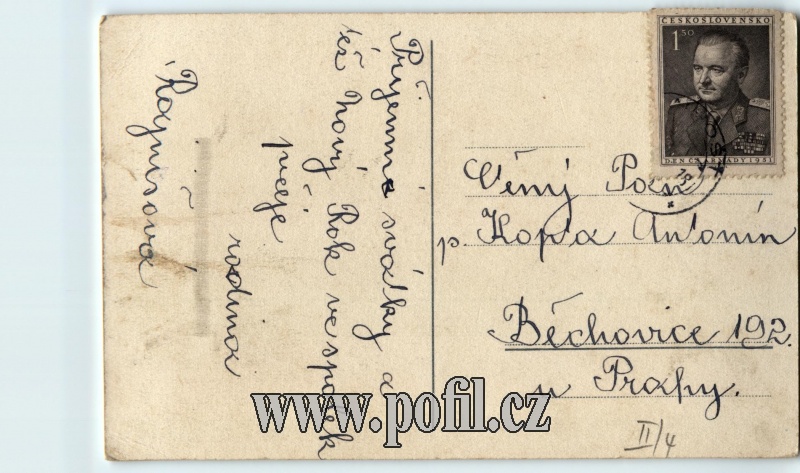 Příjemné svátky a
též Nový Rok ve spolek
přeje
rodina
ČESKOSLOVENSKO
1.50
DEN ČS. ARMÁDY 1951
Ctěný Pan
p. Kopta Antonín
Běchovice 192.
u Prahy.
II/4
www.pofil.cz